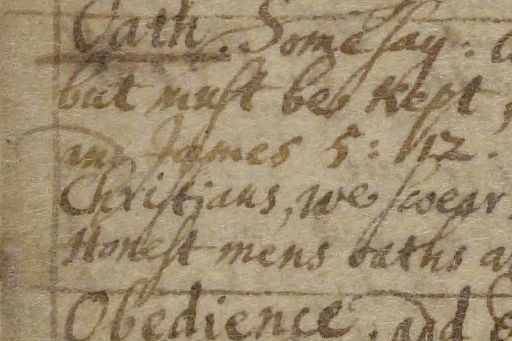 Oath. Some say: a
but must bee kept,
James 5: 12.
Christians, we swear
Honest mens oaths a
Obedience, and